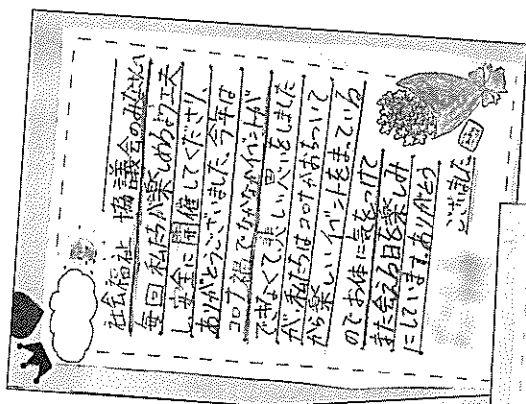 社会福祉協議会のみなさんへ
毎回私たちが楽しめるよう工夫
し安全に開催してくださり、
ありがとうございました。今年は
コロナ禍でなかなかイベントが
できなくて美しい思いをしました
が、私たちはコロナがおちついて
から楽しいイベントをまっている
のでお体に気をつけて
また会える日を楽しみ
にしています。ありがとう
ございました。